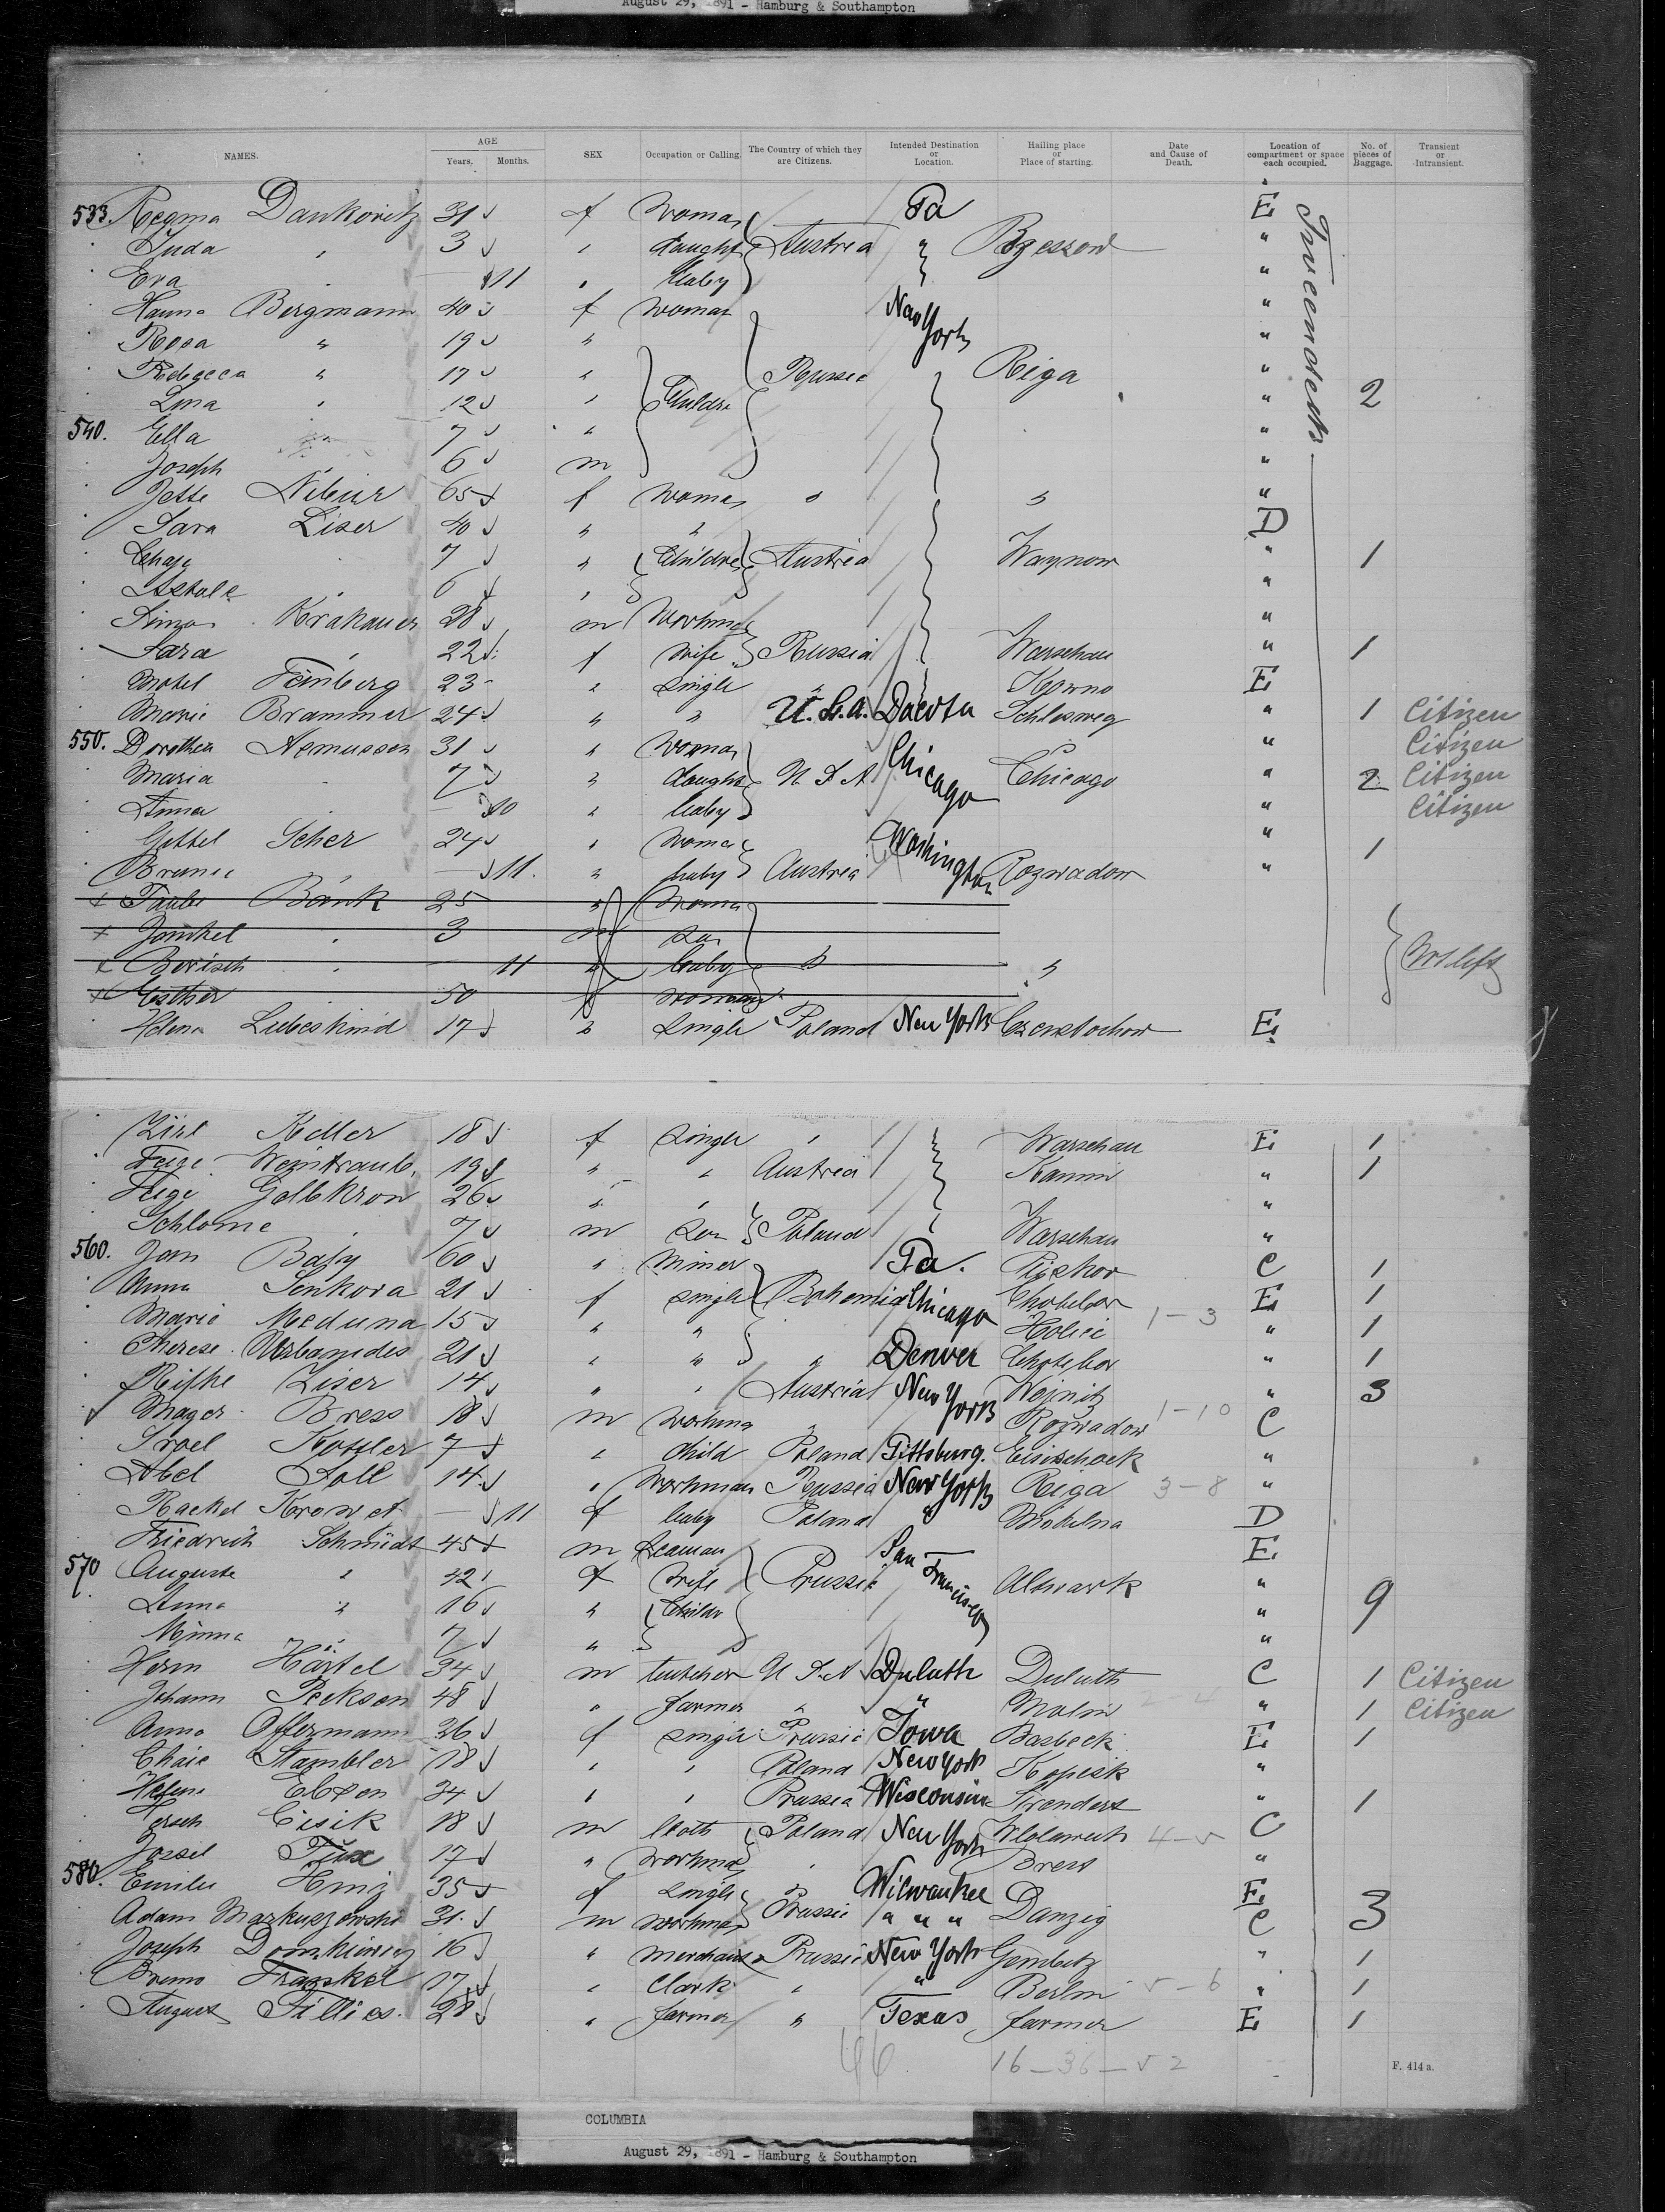 August 29, 1891 - Hamburg & Southampton
NAMES. AGE Years. Months. SEX Occupation or Calling. The Country of which they are Citizens. Intended Destination or Location. Hailing place or Place of starting. Date and Cause of Death. Location of compartment or space each occupied. No. of pieces of Baggage. Transient or Intransient.
533. Regina Dankovitz 31 f woman Pa E
Juda " 3 " daught Austria " Rzeszow "
Eva 11 " baby "
Hanna Bergmann 40 f woman New York "
Rosa " 19 " "
Rebecca " 17 " Russia Riga "
Lina " 12 " Childre " 2
540. Ella 7 " "
Joseph 6 m "
Jette 65 f woman " " "
Sara Liser 40 " " D
7 " Childre Austria " 1
6 "
Simon Krakauer 28 m workman "
Sara " 22 f wife Russia Warschau " 1
Motel Feinberg 23 " single " Kowno E
Marie Brammer 24 " " U.S.A. Dacota Schleswig " 1 Citizen
550. Dorothea Asmussen 31 " woman " Citizen
Maria 7 " daught U S A Chicago Chicago " 2 Citizen
Anna 10 " baby " Citizen
Gittel Scher 24 " woman Washington " 1
11. " baby Austria Rozwadow "
x Taube Bank 25 " woma
x Jankel " 3 m son
x Berisch " 11 " baby " " Not left
x Esther 50 f woman
Helena Liebeskind 17 " single Poland New York Czenstochow E
Tweendeck
Zirl Keller 18 f single " Warschau E 1
Feige Weintraub 19 " " Austria Kamin " 1
Feige Gelbkron 26 " " "
Schlome " 7 m son Poland Warschau "
560. Jan 60 " miner Pa. C 1
Anna Senkora 21 f single Bohemia Chicago Chotebor E 1
Marie Meduna 15 " " Holici 1-3 " 1
Therese 21 " " " Denver Chotebor " 1
Rifke Liser 14 " " Austria New York " 3
Mayer Bress 18 m workma " Rozwadow 1-10 C
Israel Kottler 7 " Child Poland Pittsburg. Eisischock "
Abel Soll 14 " workman Russia New York Riga 3-8 "
Rachel 11 f baby Poland " D
Friedrich Schmidt 45 m seaman San Francisco E
570 Auguste " 42 f wife Prussia "
Anna " 16 " Childr " 9
Minna " 7 " "
Herm Härtel 34 m U S A Duluth Duluth C 1 Citizen
Johann Peckson 48 " farmer " " 2-4 " 1 Citizen
Anna Offermann 26 f single Prussia Iowa Basbeck E 1
Chaie Stambler 18 " " Poland New York Kopisk "
Helene 24 " " Prussia Wisconsin " 1
Hersch Cisik 18 m both Poland New York 4-5 C
Jossel Fux 17 " workma " Brest "
580. Emilie 35 f single " Milwaukee E
Adam 31 m workman Prussia " " " Danzig C 3
Joseph 16 " merchant Prussia New York Gembitz " 1
Bruno Frankel 17 " Clark " " Berlin 5-6 " 1
August Fillies. 28 " farmer " Texas farmer E 1
46 16-36-52
F. 414 a.
COLUMBIA
August 29, 1891 - Hamburg & Southampton